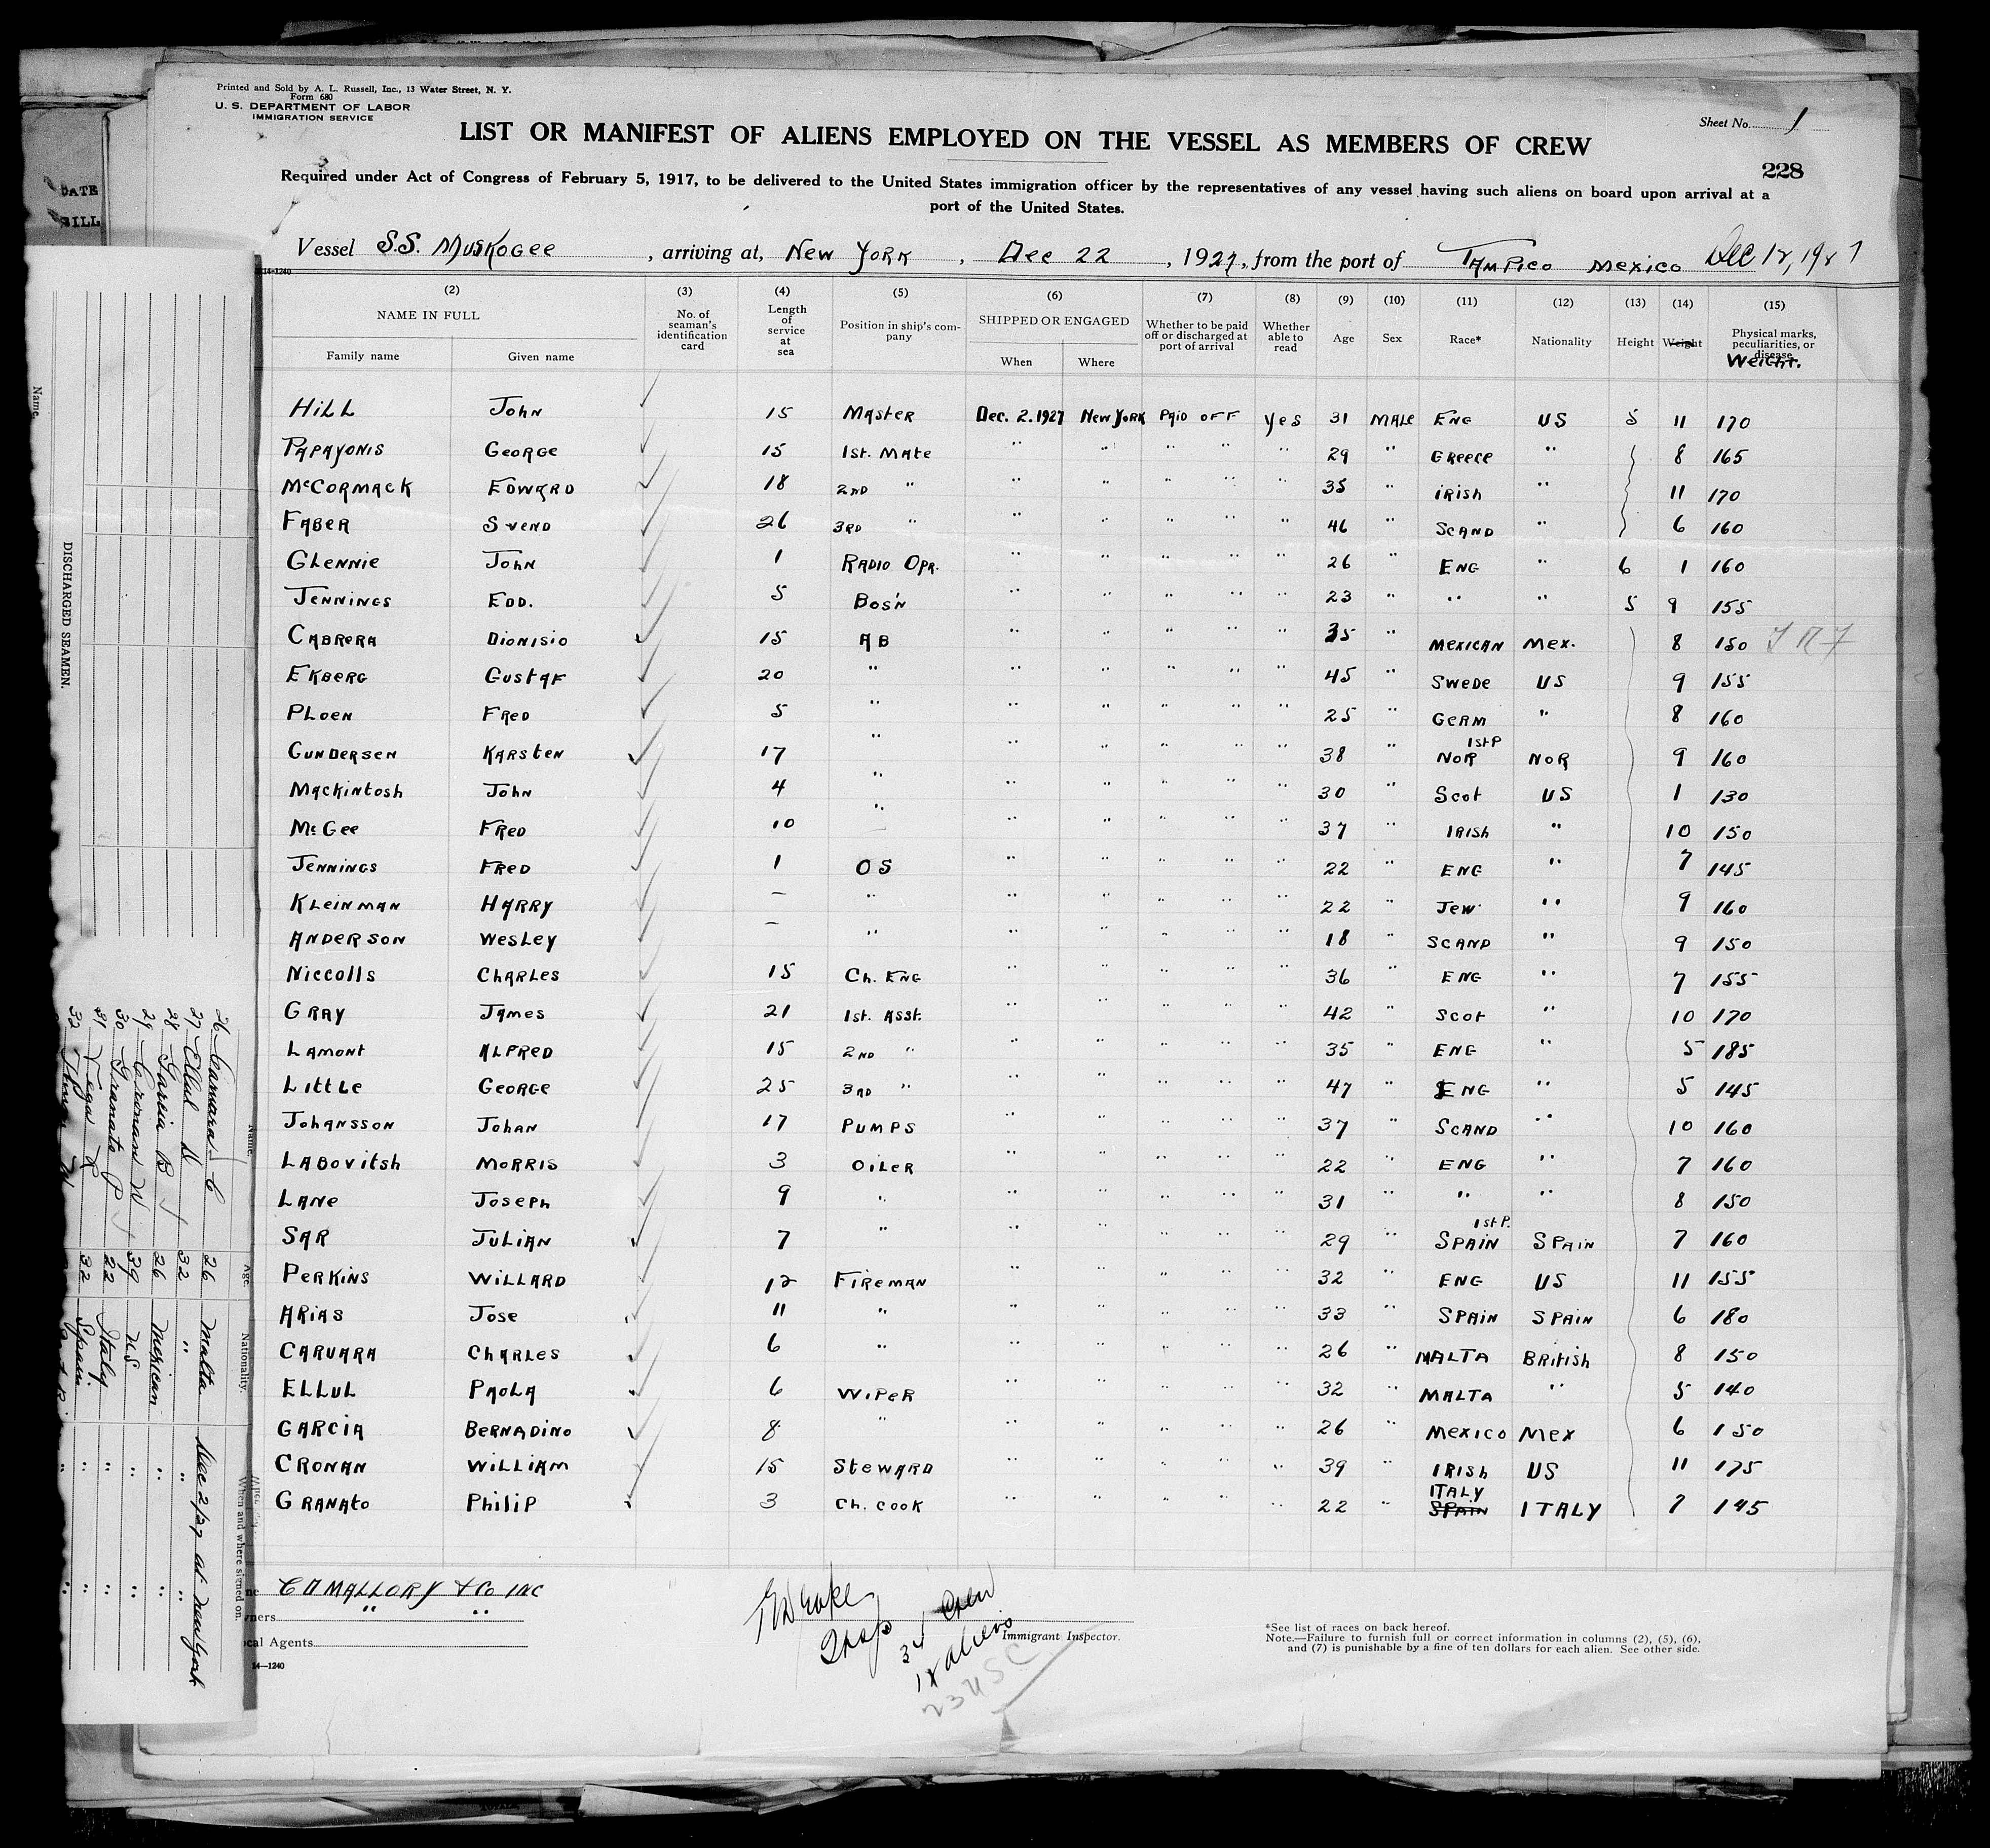 Printed and Sold by A. L. Russell, Inc., 13 Water Street, N. Y.
Form 680
U. S. DEPARTMENT OF LABOR
IMMIGRATION SERVICE
Sheet No. 1
LIST OR MANIFEST OF ALIENS EMPLOYED ON THE VESSEL AS MEMBERS OF CREW
228
Required under Act of Congress of February 5, 1917, to be delivered to the United States immigration officer by the representatives of any vessel having such aliens on board upon arrival at a
port of the United States.
Vessel S.S. Muskogee, arriving at, New York, Dec 22, 1927, from the port of Tampico Mexico Dec 12, 1927
14-1240
(2) (3) (4) (5) (6) (7) (8) (9) (10) (11) (12) (13) (14) (15)
NAME IN FULL Family name Given name
No. of seaman's identification card
Length of service at sea
Position in ship's company
SHIPPED OR ENGAGED When Where
Whether to be paid off or discharged at port of arrival
Whether able to read
Age Sex Race* Nationality Height Weight
Physical marks, peculiarities, or disease
Weight.
Hill John 15 Master Dec. 2. 1927 New York Paid off yes 31 Male Eng US 5 11 170
Papayonis George 15 1st. Mate " " " " " 29 " Greece " 8 165
McCormack Edward 18 2nd " " " " " " 35 " Irish " 11 170
Faber Svend 26 3rd " " " " " " 46 " Scand " 6 160
Glennie John 1 Radio Opr. " " " " " 26 " Eng " 6 1 160
Jennings Edd. 5 Bos'n " " " " " 23 " " " 5 9 155
Cabrera Dionisio 15 AB " " " " " 35 " Mexican Mex. 8 150
Ekberg Gustaf 20 " " " " " " 45 " Swede US 9 155
Ploen Fred 5 " " " " " " 25 " Germ " 8 160
Gundersen Karsten 17 " " " " " " 38 " Nor 1st P Nor 9 160
Mackintosh John 4 " " " " " " 30 " Scot US 1 130
McGee Fred 10 " " " " " " 37 " Irish " 10 150
Jennings Fred 1 OS " " " " " 22 " Eng " 7 145
Kleinman Harry — " " " " " " 22 " Jew " 9 160
Anderson Wesley — " " " " " " 18 " Scand " 9 150
Niccolls Charles 15 Ch. Eng " " " " " 36 " Eng " 7 155
Gray James 21 1st. Asst. " " " " " 42 " Scot " 10 170
Lamont Alfred 15 2nd " " " " " " 35 " Eng " 5 185
Little George 25 3rd " " " " " " 47 " Eng " 5 145
Johansson Johan 17 Pumps " " " " " 37 " Scand " 10 160
Labovitsh Morris 3 Oiler " " " " " 22 " Eng " 7 160
Lane Joseph 9 " " " " " " 31 " " " 8 150
Sar Julian 7 " " " " " " 29 " Spain 1st P. Spain 7 160
Perkins Willard 12 Fireman " " " " " 32 " Eng US 11 155
Arias Jose 11 " " " " " " 33 " Spain Spain 6 180
Caruara Charles 6 " " " " " " 26 " Malta British 8 150
Ellul Paola 6 Wiper " " " " " 32 " Malta " 5 140
Garcia Bernadino 8 " " " " " " 26 " Mexico Mex 6 150
Cronan William 15 Steward " " " " " 39 " Irish US 11 175
Granato Philip 3 Ch. Cook " " " " " 22 " Italy Spain Italy 7 145
C D Mallory & Co Inc
" "
Local Agents
14—1240
34 Crew
23 USC
Immigrant Inspector.
*See list of races on back hereof.
Note.—Failure to furnish full or correct information in columns (2), (5), (6),
and (7) is punishable by a fine of ten dollars for each alien. See other side.
DATE
Name.
DISCHARGED SEAMEN.
Name. Age. Nationality. When and where signed on.
26 C 26 Malta Dec 2/27 at New York
27 Ellul 32 " " "
28 Garcia B 26 Mexican " "
29 Cronan W 39 US " "
30 Granato P 22 Italy " "
31 Vega R 32 Spain. " "
32